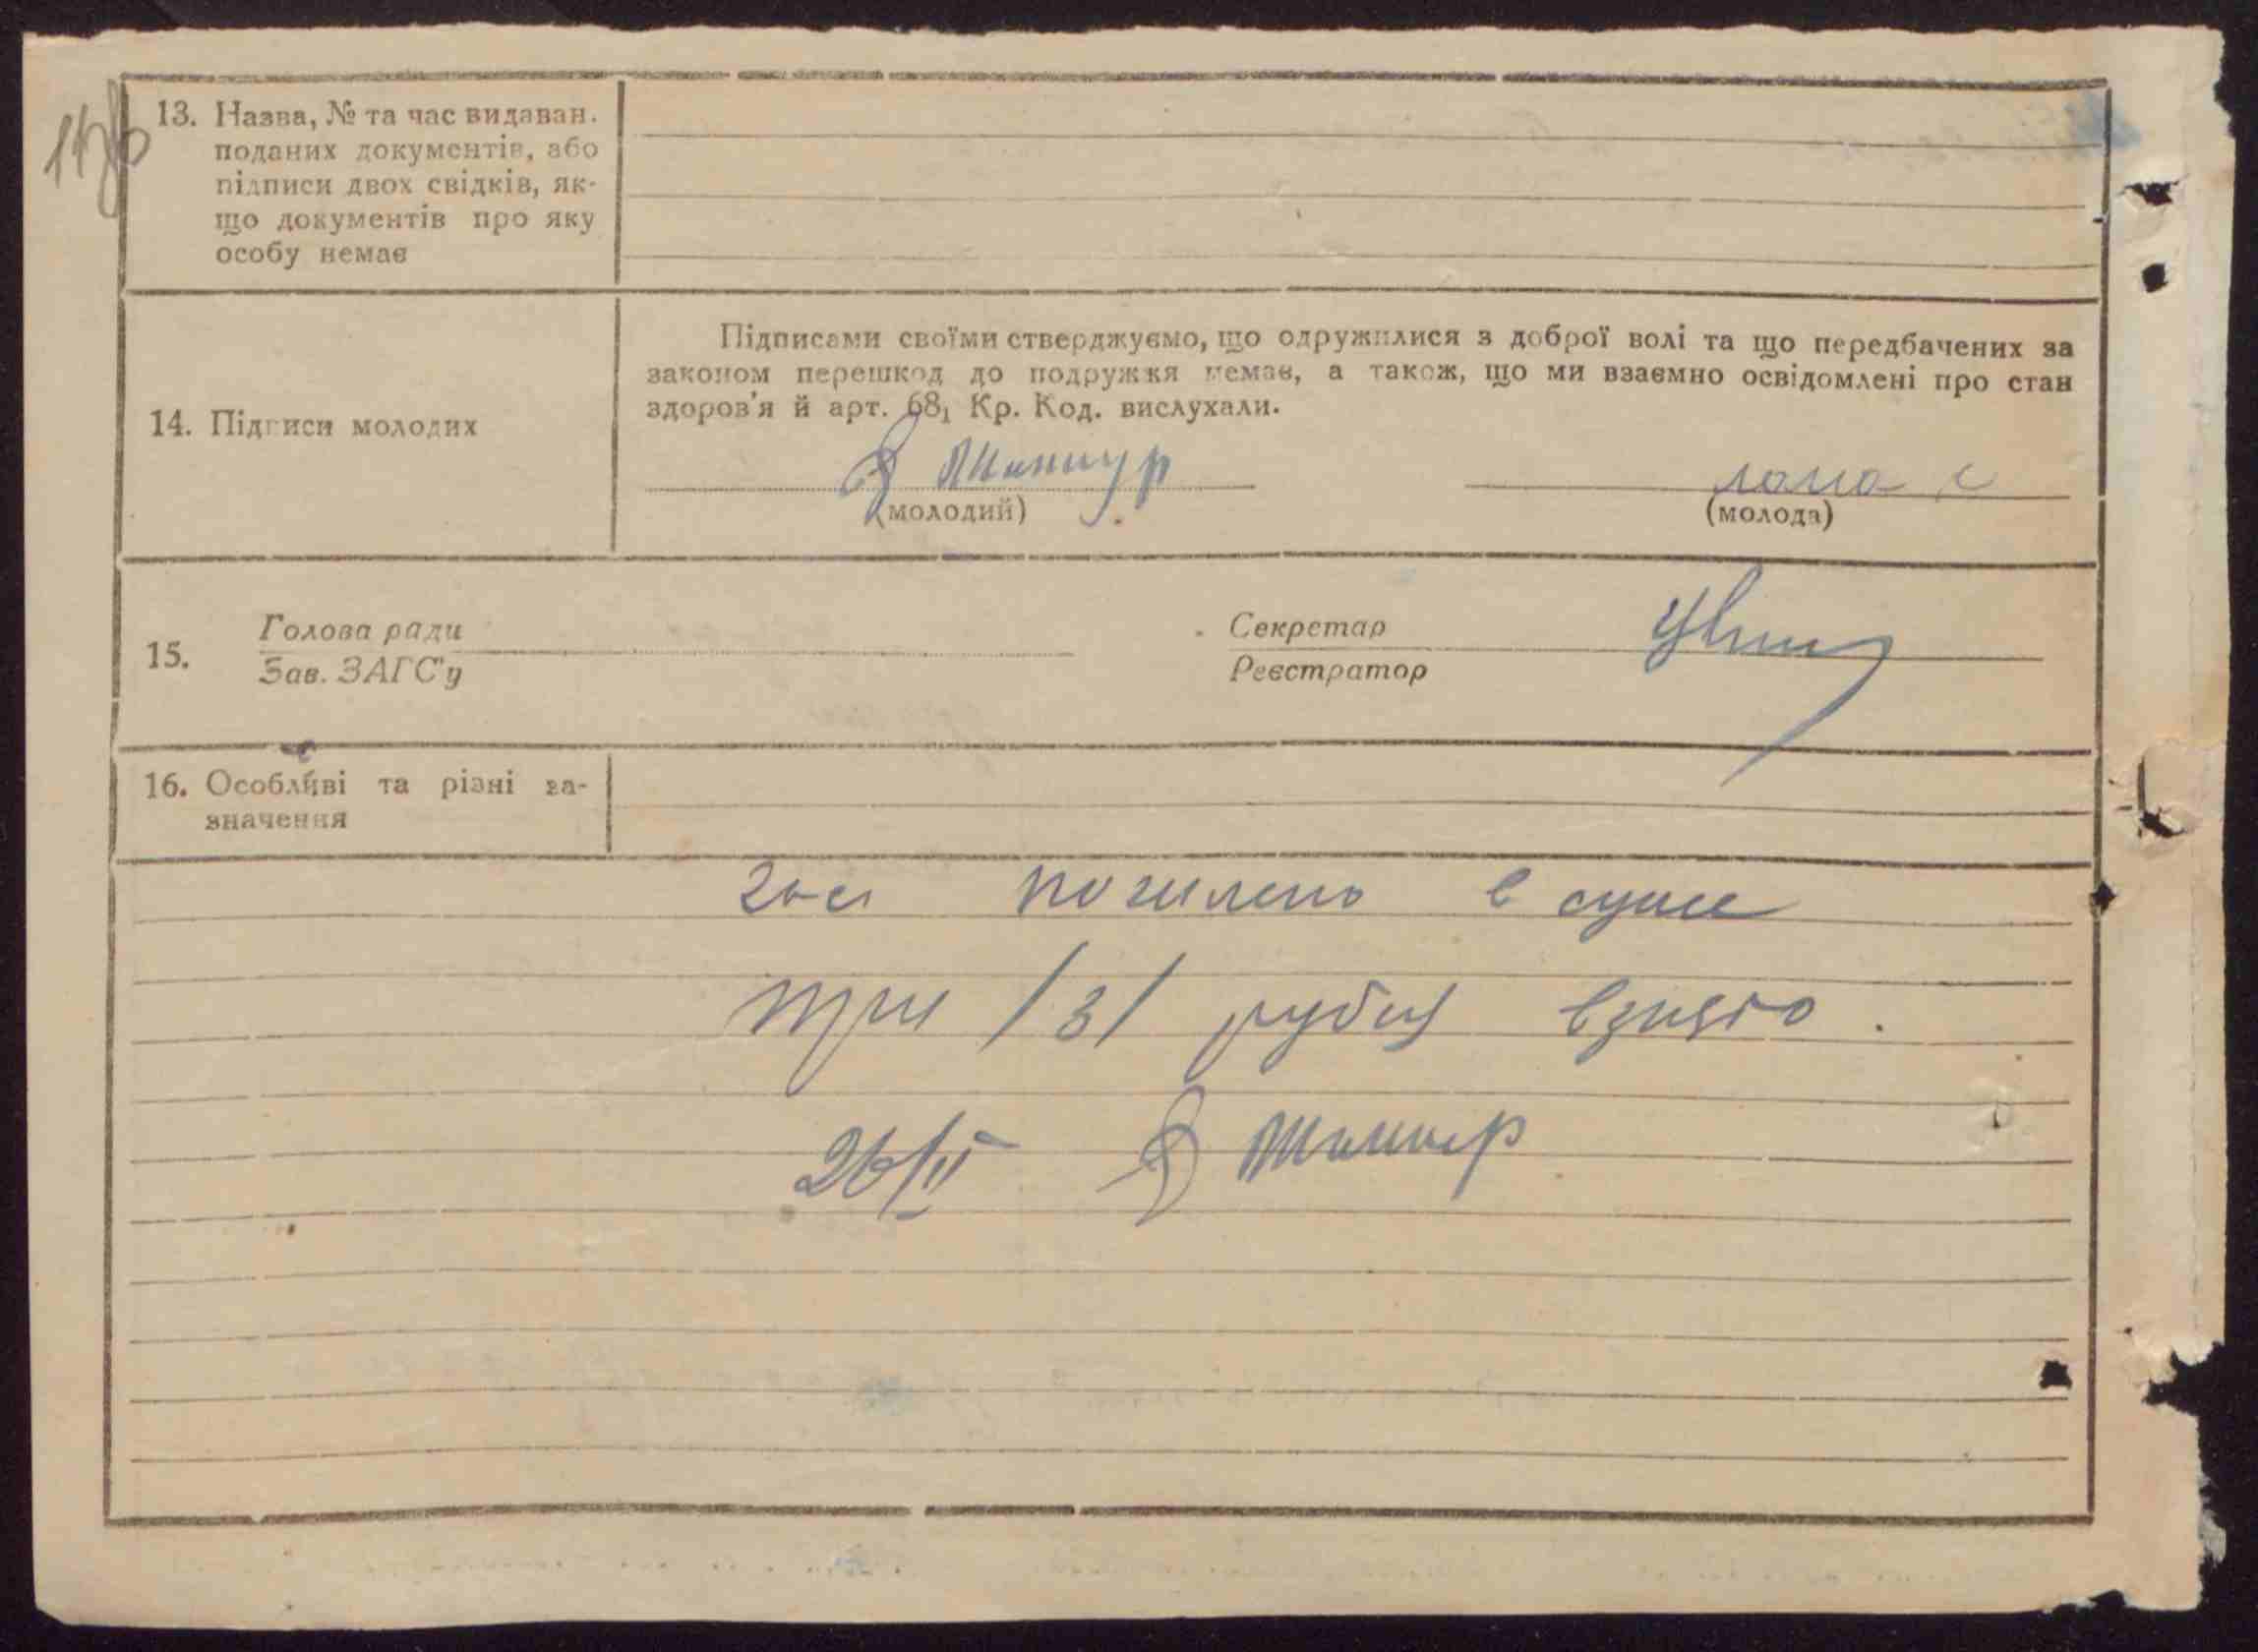 13. Назва, № та час видаван.
поданих документів, або
підписи двох свідків, як-
що документів про яку
особу немає
Підписами своїми стверджуємо, що одружилися з доброї волі та що передбачених за
законом перешкод до подружжя немає, а також, що ми взаємно освідомлені про стан
здоров'я й арт. 68₁ Кр. Код. вислухали.
14. Підписи молодих
(молодий)
(молода)
15.
Голова ради
Зав. ЗАГС'у
Секретар
Реєстратор
16. Особливі та різні за-
значення
в сумме
три /3/ рубл взято.
26/II